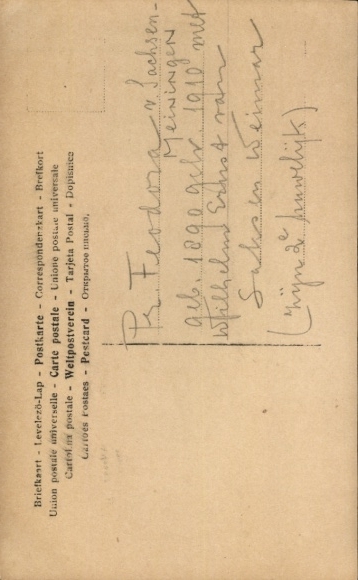 Briefkaart - Levelező-Lap - Postkarte - Correspondenzkart - Brefkort
Union postale universelle - Carte postale - Unione postale universale
Cartolina postale - Weltpostverein - Tarjeta Postal - Dopisnice
Cartões Postaes - Postcard - Открытое письмо.
Pr. Feodora v. Sachsen-
Meiningen
geb. 1890 gehr. 1910 met
Wilhelm Ernst van
Saksen Weimar
(zijn 2e huwelijk)